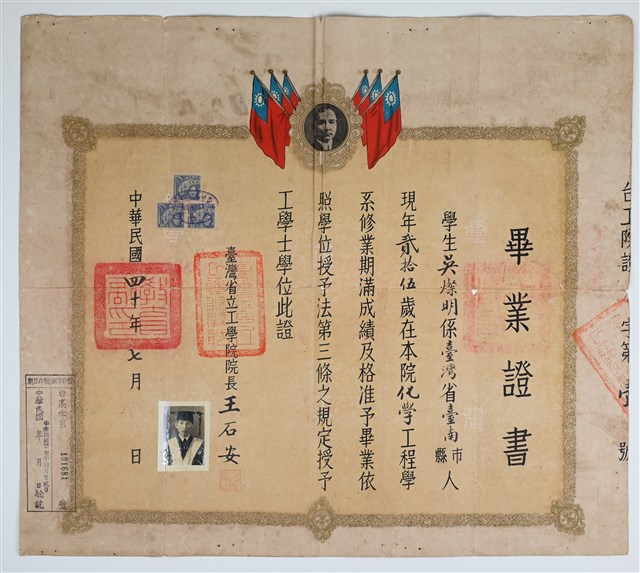 台工院證字第壹號
畢業證書
學生吳燦明係臺灣省臺南市縣人
現年貳拾伍歲在本院化學工程學
系修業期滿成績及格准予畢業依
照學位授予法第三條之規定授予
工學士學位此證
臺灣省立工學院院長王石安
中華民國四十年七月 日
台高字第
191681
號
中華民國 年 月 日驗訖